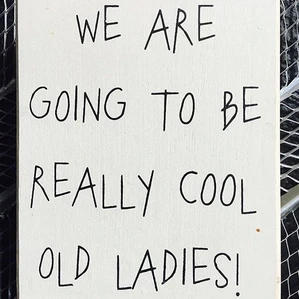 WE ARE
GOING TO BE
REALLY COOL
OLD LADIES!